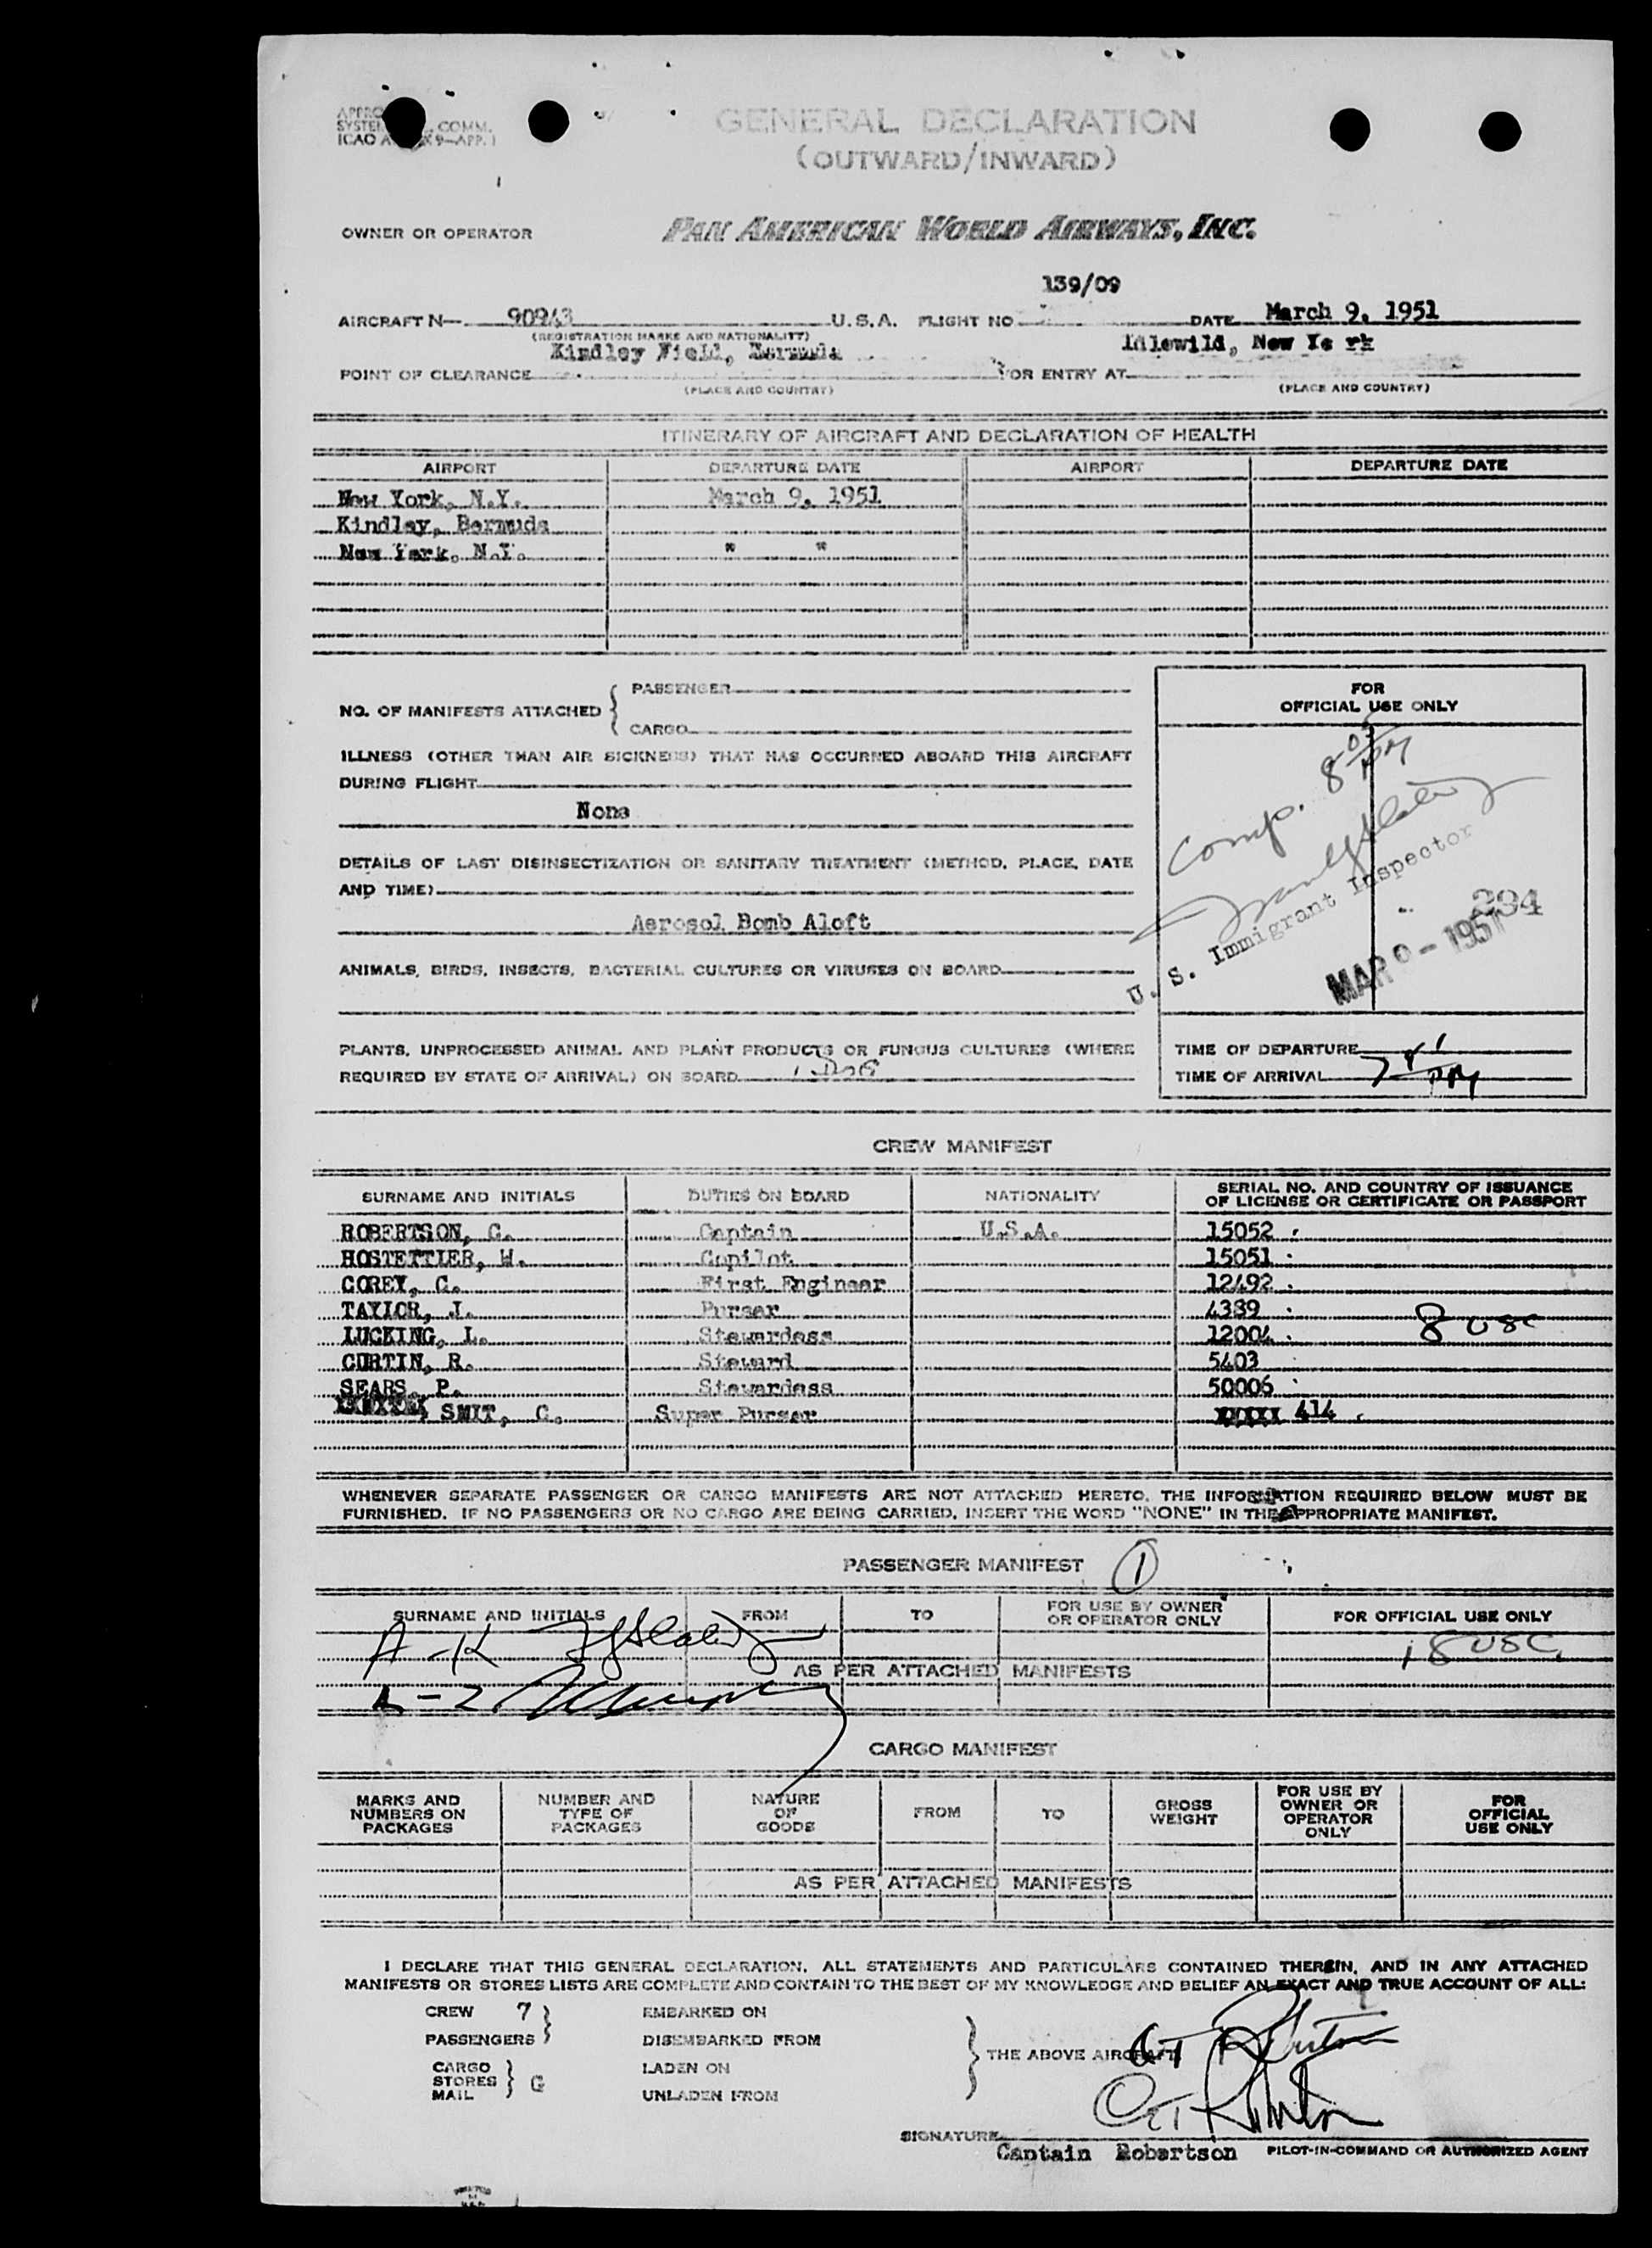 GENERAL DECLARATION
(OUTWARD/INWARD)
COMM.
ICAO 9—APP. 1
OWNER OR OPERATOR PAN AMERICAN WORLD AIRWAYS, INC.
139/09
AIRCRAFT N— 90943 U.S.A. FLIGHT NO. DATE March 9, 1951
(REGISTRATION MARKS AND NATIONALITY)
Kindley Field, Bermuda Idlewild, New Yo rk
POINT OF CLEARANCE FOR ENTRY AT
(PLACE AND COUNTRY) (PLACE AND COUNTRY)
ITINERARY OF AIRCRAFT AND DECLARATION OF HEALTH
AIRPORT DEPARTURE DATE AIRPORT DEPARTURE DATE
New York, N.Y. March 9, 1951
Kindley, Bermuda
New York, N.Y. " "
NO. OF MANIFESTS ATTACHED { PASSENGER
CARGO
ILLNESS (OTHER THAN AIR SICKNESS) THAT HAS OCCURRED ABOARD THIS AIRCRAFT
DURING FLIGHT
None
DETAILS OF LAST DISINSECTIZATION OR SANITARY TREATMENT (METHOD, PLACE, DATE
AND TIME)
Aerosol Bomb Aloft
ANIMALS, BIRDS, INSECTS, BACTERIAL CULTURES OR VIRUSES ON BOARD
PLANTS, UNPROCESSED ANIMAL AND PLANT PRODUCTS OR FUNGUS CULTURES (WHERE
REQUIRED BY STATE OF ARRIVAL) ON BOARD 1 DOG
FOR
OFFICIAL USE ONLY
Comp. 8 05 PM
U. S. Immigrant Inspector
294
MAR 9 - 1951
TIME OF DEPARTURE
TIME OF ARRIVAL 7 41 PM
CREW MANIFEST
SURNAME AND INITIALS DUTIES ON BOARD NATIONALITY SERIAL NO. AND COUNTRY OF ISSUANCE
OF LICENSE OR CERTIFICATE OR PASSPORT
ROBERTSON, C. Captain U.S.A. 15052
HOSTETTLER, W. Copilot 15051
COREY, C. First Engineer 12492
TAYLOR, J. Purser 4389
LUCKING, L. Stewardess 12004 8 USC
CURTIN, R. Steward 5403
SEARS, P. Stewardess 50006
SMIT, C. Super Purser 414
WHENEVER SEPARATE PASSENGER OR CARGO MANIFESTS ARE NOT ATTACHED HERETO, THE INFORMATION REQUIRED BELOW MUST BE
FURNISHED. IF NO PASSENGERS OR NO CARGO ARE BEING CARRIED, INSERT THE WORD "NONE" IN THE APPROPRIATE MANIFEST.
PASSENGER MANIFEST 1
SURNAME AND INITIALS FROM TO FOR USE BY OWNER
OR OPERATOR ONLY FOR OFFICIAL USE ONLY
A-K 18 USC
AS PER ATTACHED MANIFESTS
L-Z
CARGO MANIFEST
MARKS AND
NUMBERS ON
PACKAGES
NUMBER AND
TYPE OF
PACKAGES
NATURE
OF
GOODS
FROM
TO
GROSS
WEIGHT
FOR USE BY
OWNER OR
OPERATOR
ONLY
FOR
OFFICIAL
USE ONLY
AS PER ATTACHED MANIFESTS
I DECLARE THAT THIS GENERAL DECLARATION, ALL STATEMENTS AND PARTICULARS CONTAINED THEREIN, AND IN ANY ATTACHED
MANIFESTS OR STORES LISTS ARE COMPLETE AND CONTAIN TO THE BEST OF MY KNOWLEDGE AND BELIEF AN EXACT AND TRUE ACCOUNT OF ALL:
CREW 7 EMBARKED ON
PASSENGERS DISEMBARKED FROM
THE ABOVE AIRCRAFT
CARGO LADEN ON
STORES G
MAIL UNLADEN FROM
SIGNATURE
Captain Robertson PILOT-IN-COMMAND OR AUTHORIZED AGENT